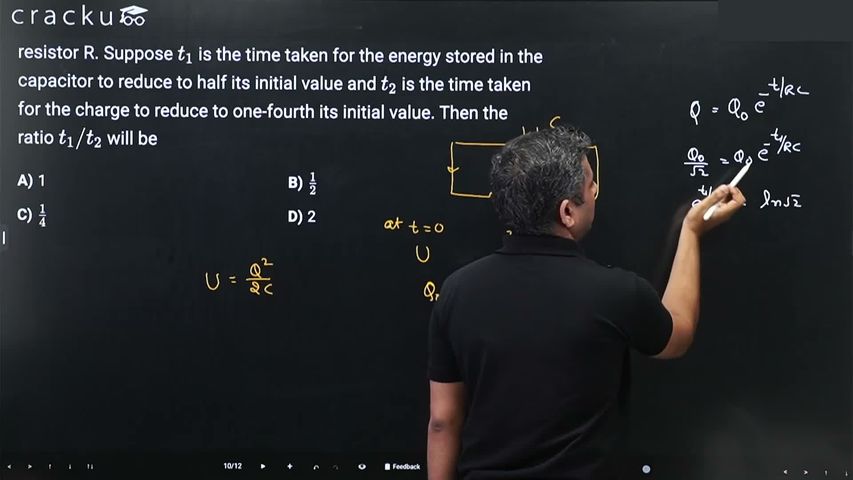 cracku
resistor R. Suppose t₁ is the time taken for the energy stored in the
capacitor to reduce to half its initial value and t₂ is the time taken
for the charge to reduce to one-fourth its initial value. Then the
ratio t₁/t₂ will be
A) 1
B) 1/2
C) 1/4
D) 2
C
at t=0
U
U = Q²/2C
Q = Q₀ e^(-t/RC)
Q₀/√2 = Q₀ e^(-t₁/RC)
ln√2
10/12
Feedback